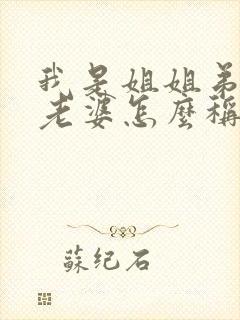 我是姐姐弟
老婆怎麼稱
蘇紀石